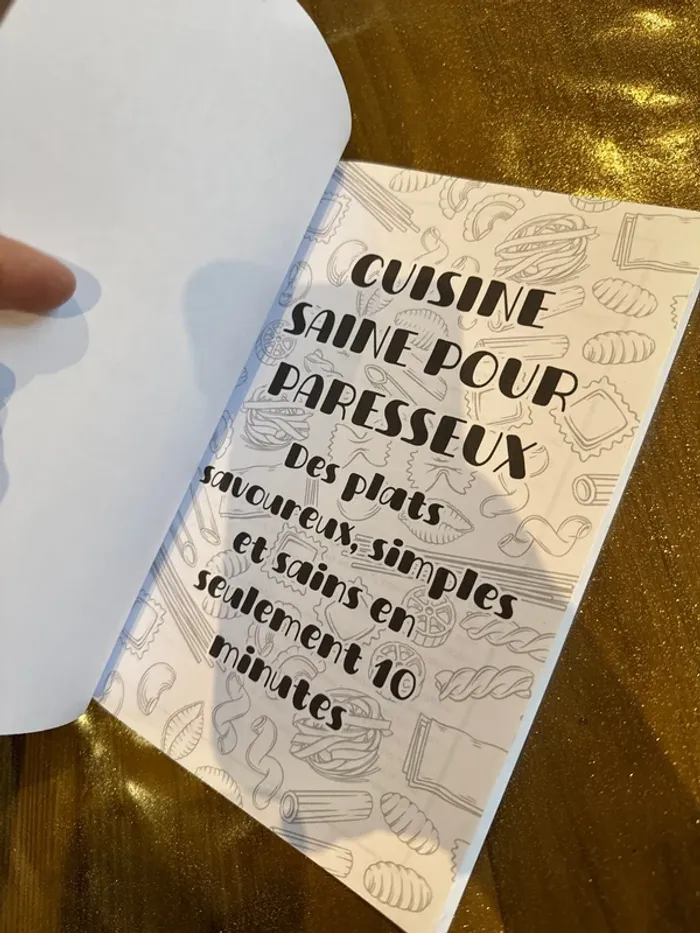 CUISINE
SAINE POUR
PARESSEUX
Des plats
savoureux, simples
et sains en
seulement 10
minutes